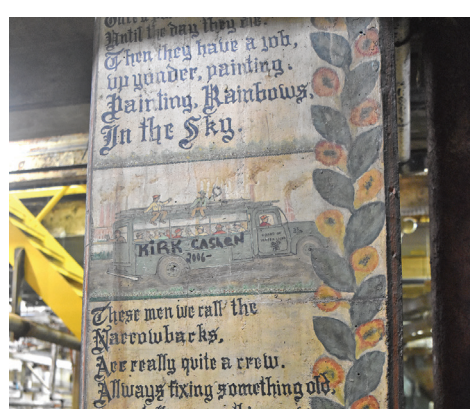 Until the day they die.
Then they have a job,
up yonder, painting.
Painting, Rainbows,
In the Sky.
KIRK CASHEN
2006-
These men we call the
Narrowbacks,
Are really quite a crew.
Allways fixing something old,